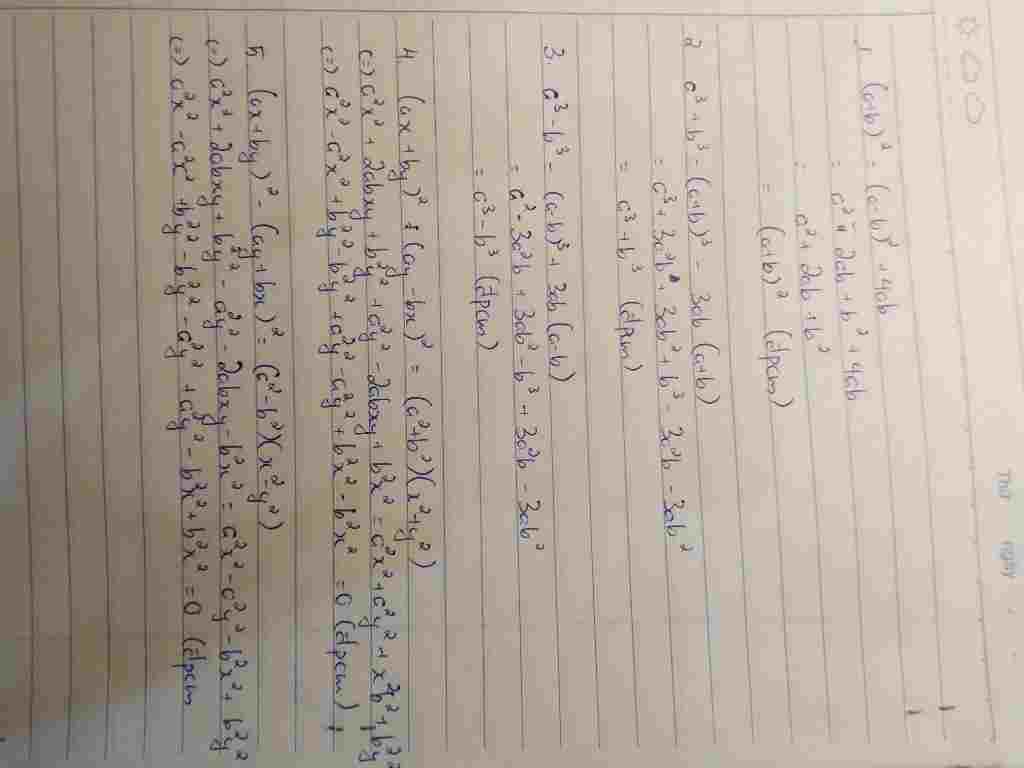 Thứ ngày
1. (a+b)² = (a-b)² + 4ab
= a² - 2ab + b² + 4ab
= a² + 2ab + b²
= (a+b)² (đpcm)
2. a³ + b³ = (a+b)³ - 3ab (a+b)
= a³ + 3a²b + 3ab² + b³ - 3a²b - 3ab²
= a³ + b³ (đpcm)
3. a³ - b³ = (a-b)³ + 3ab (a-b)
= a³ - 3a²b + 3ab² - b³ + 3a²b - 3ab²
= a³ - b³ (đpcm)
4. (ax + by)² + (ay - bx)² = (a²+b²)(x²+y²)
(=) a²x² + 2abxy + b²y² + a²y² - 2abxy + b²x² = a²x² + a²y² + x²b² + b²y²
(=) a²x² - a²x² + b²y² - b²y² + a²y² - a²y² + b²x² - b²x² = 0 (đpcm)
5. (ax+by)² - (ay+bx)² = (a²-b²)(x²-y²)
(=) a²x² + 2abxy + b²y² - a²y² - 2abxy - b²x² = a²x² - a²y² - b²x² + b²y²
(=) a²x² - a²x² + b²y² - b²y² - a²y² + a²y² - b²x² + b²x² = 0 (đpcm